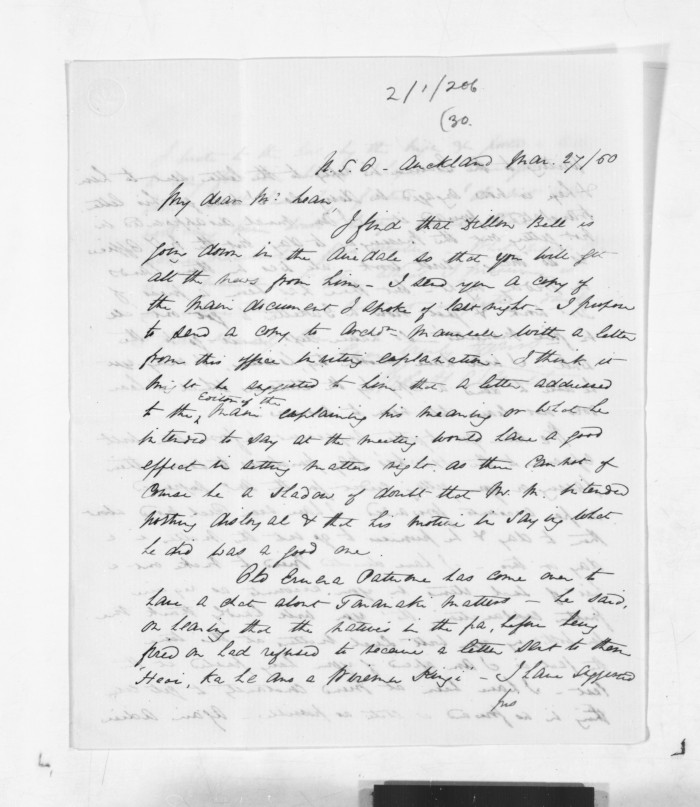 2/1/206
(30.
N. S. O - Auckland Mar. 27/60
My dear Mc Lean
I find that Dillon Bell is
going down in the Airedale so that you will get
all the news from him - I send you a copy of
the Maori document I spoke of last night - I propose
to send a copy to Archdn Maunsell with a letter
from this office inviting explanation - I think it
might be suggested to him that a letter addressed
to the Editor of the Maori explaining his meaning or what he
intended to say at the meeting would have a good
effect in setting matters right as there cannot of
course be a shadow of doubt that Mr. M. intended
nothing disloyal & that his motive in saying what
he did was a good one.
Old Eruera Patuone has come over to
have a chat about Taranaki matters - he said,
on hearing that the natives in the pa, before being
fired on had refused to receive a letter sent to them
"Heoi, ka he ano a Wiremu Kingi" - I have